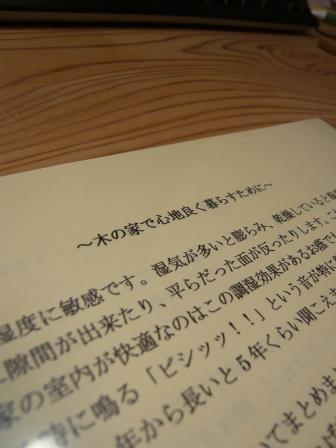 ～木の家で心地良く暮らすために～
湿度に敏感です。湿気が多いと膨らみ、乾燥していると
隙間が出来たり、平らだった面が反ったりします。
家の室内が快適なのはこの調湿効果があるお蔭で
時に鳴る「ビシッッ！！」という音が特に
年から長いと５年くらい聞こえ
てまとめま